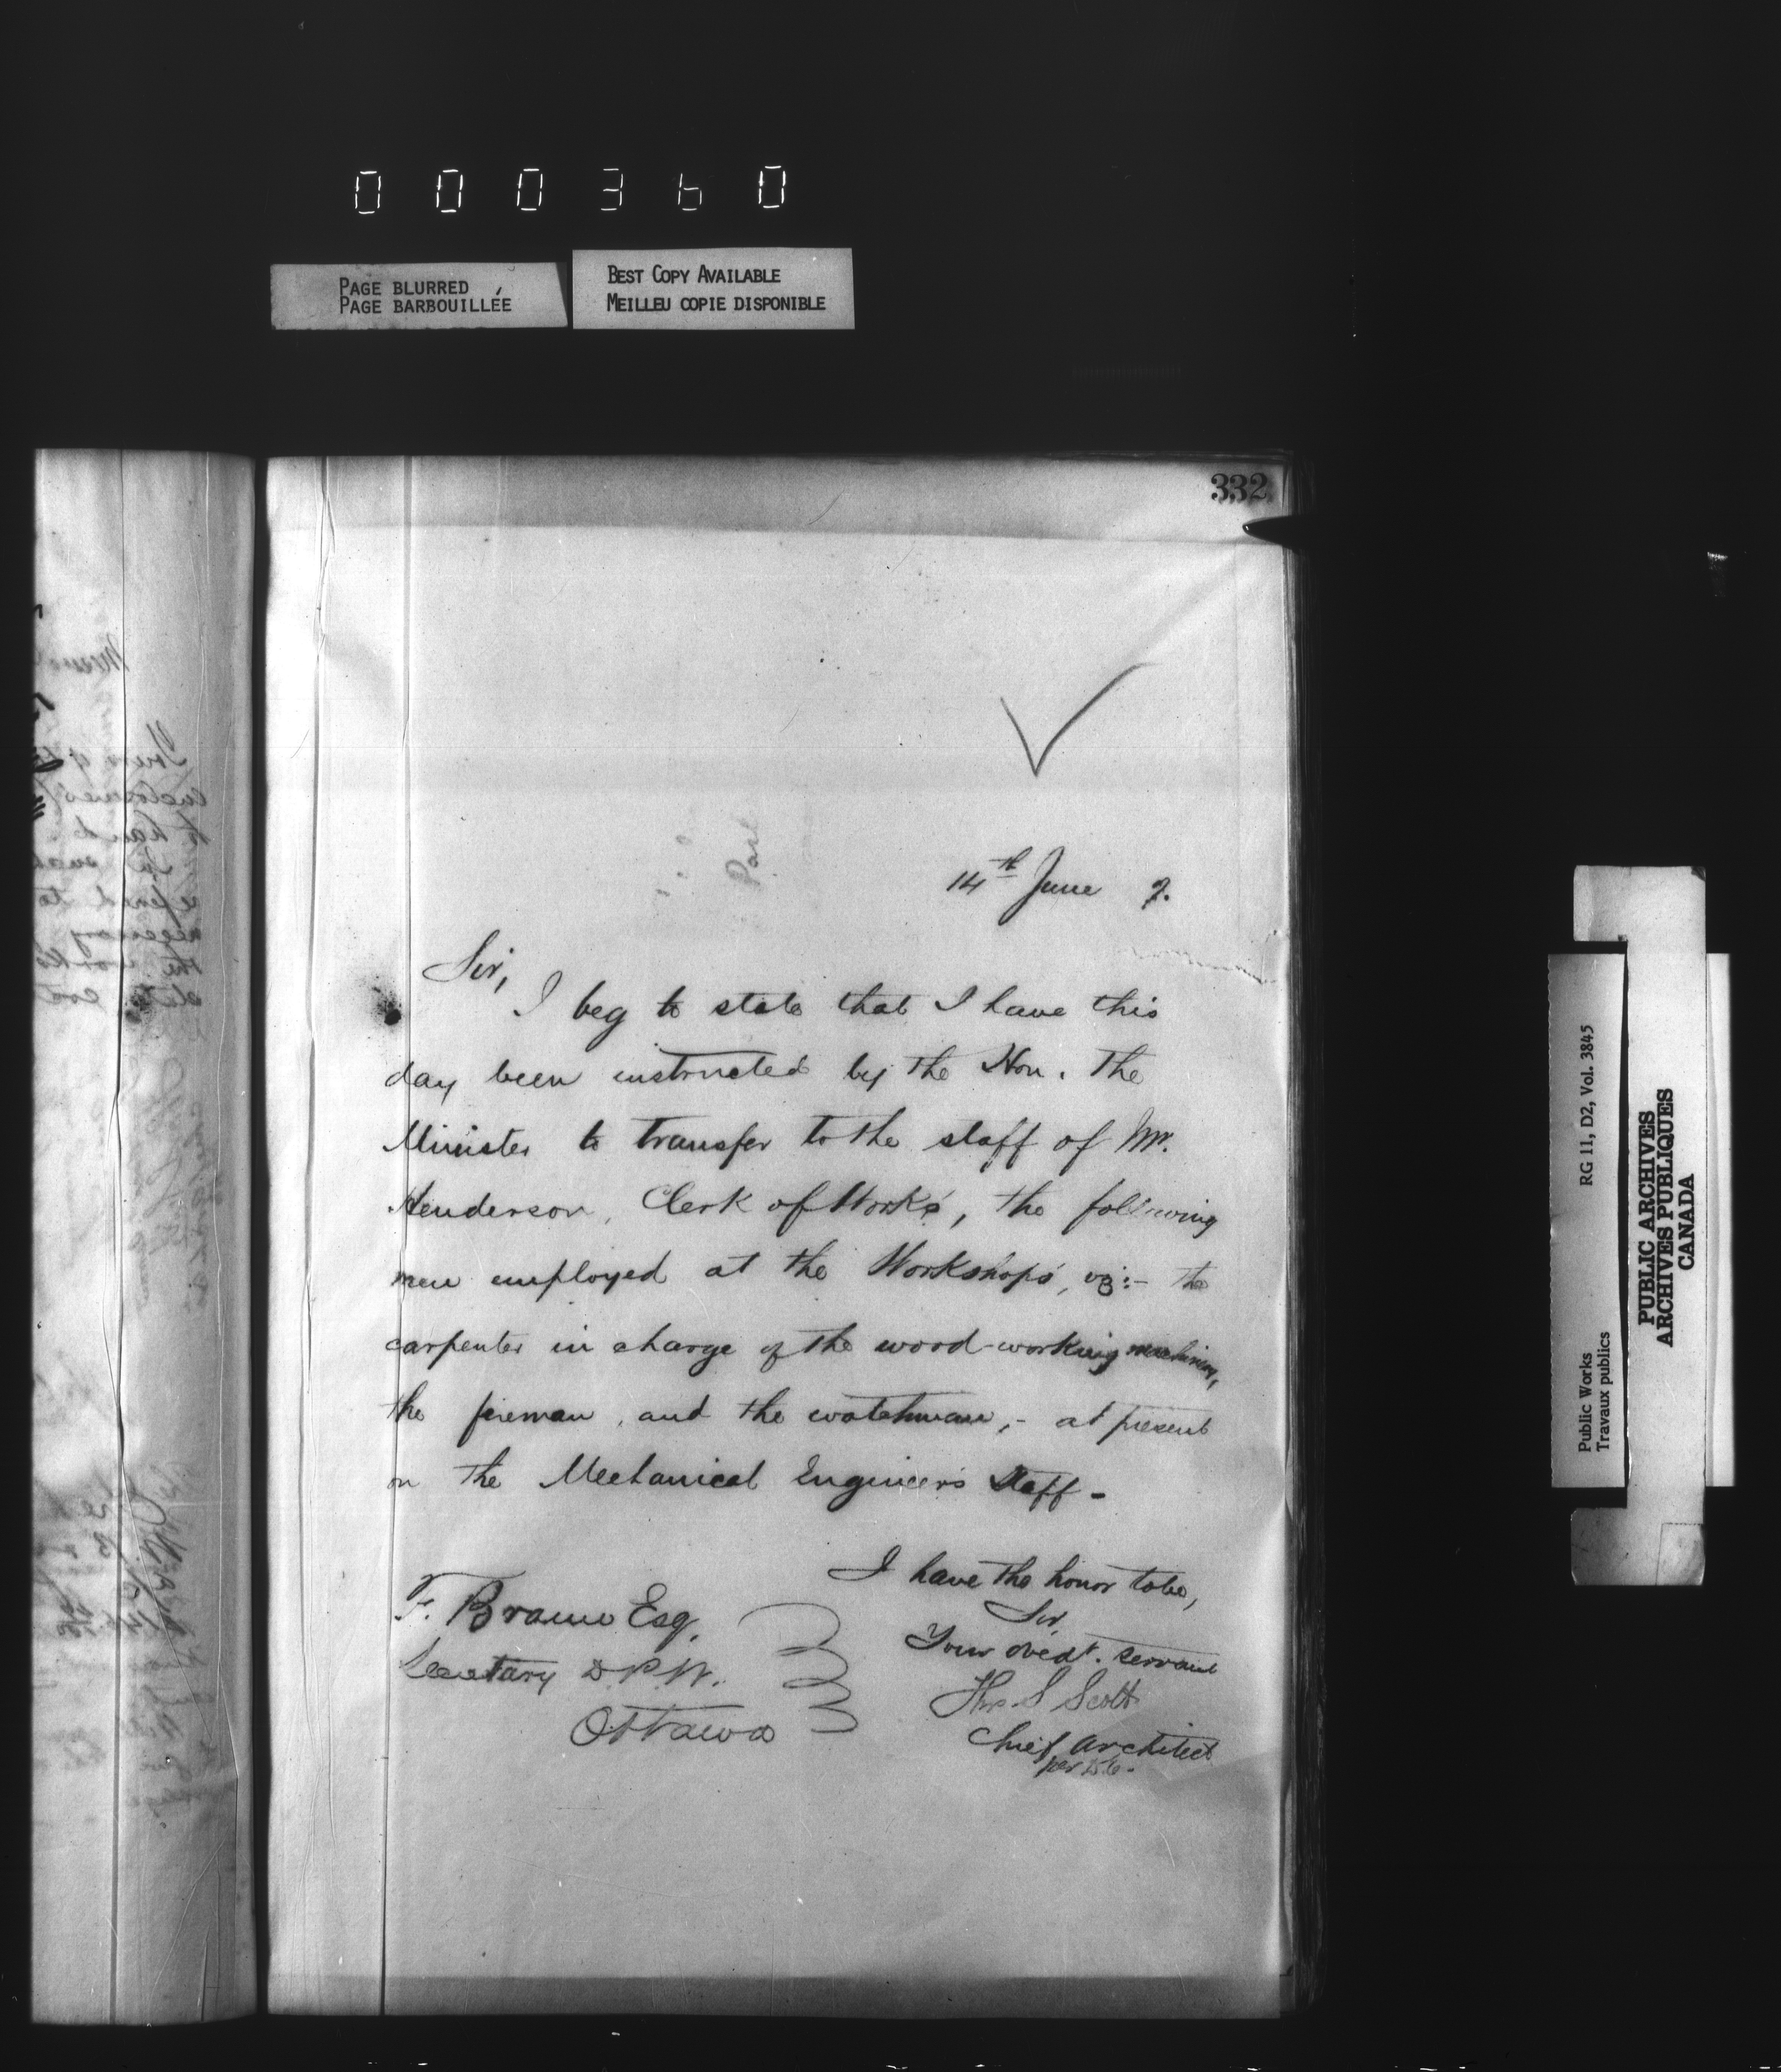 000360
PAGE BLURRED
PAGE BARBOUILLÉE
BEST COPY AVAILABLE
MEILLEU COPIE DISPONIBLE
332
14th June 7.
Sir,
I beg to state that I have this
day been instructed by the Hon. The
Minister to transfer to the staff of Mr.
Henderson, Clerk of Works, the following
men employed at the Workshops, viz:- the
carpenter in charge of the wood-working machinery,
the fireman, and the watchman,- at present
on the Mechanical Engineer's Staff-
I have the honor to be,
Sir,
Your obedt. servant
Thos S Scott
Chief Architect
per
F. Braun Esq,
Secretary D.P.W.
Ottawa
RG 11, D2, Vol. 3845
Public Works
Travaux publics
PUBLIC ARCHIVES
ARCHIVES PUBLIQUES
CANADA